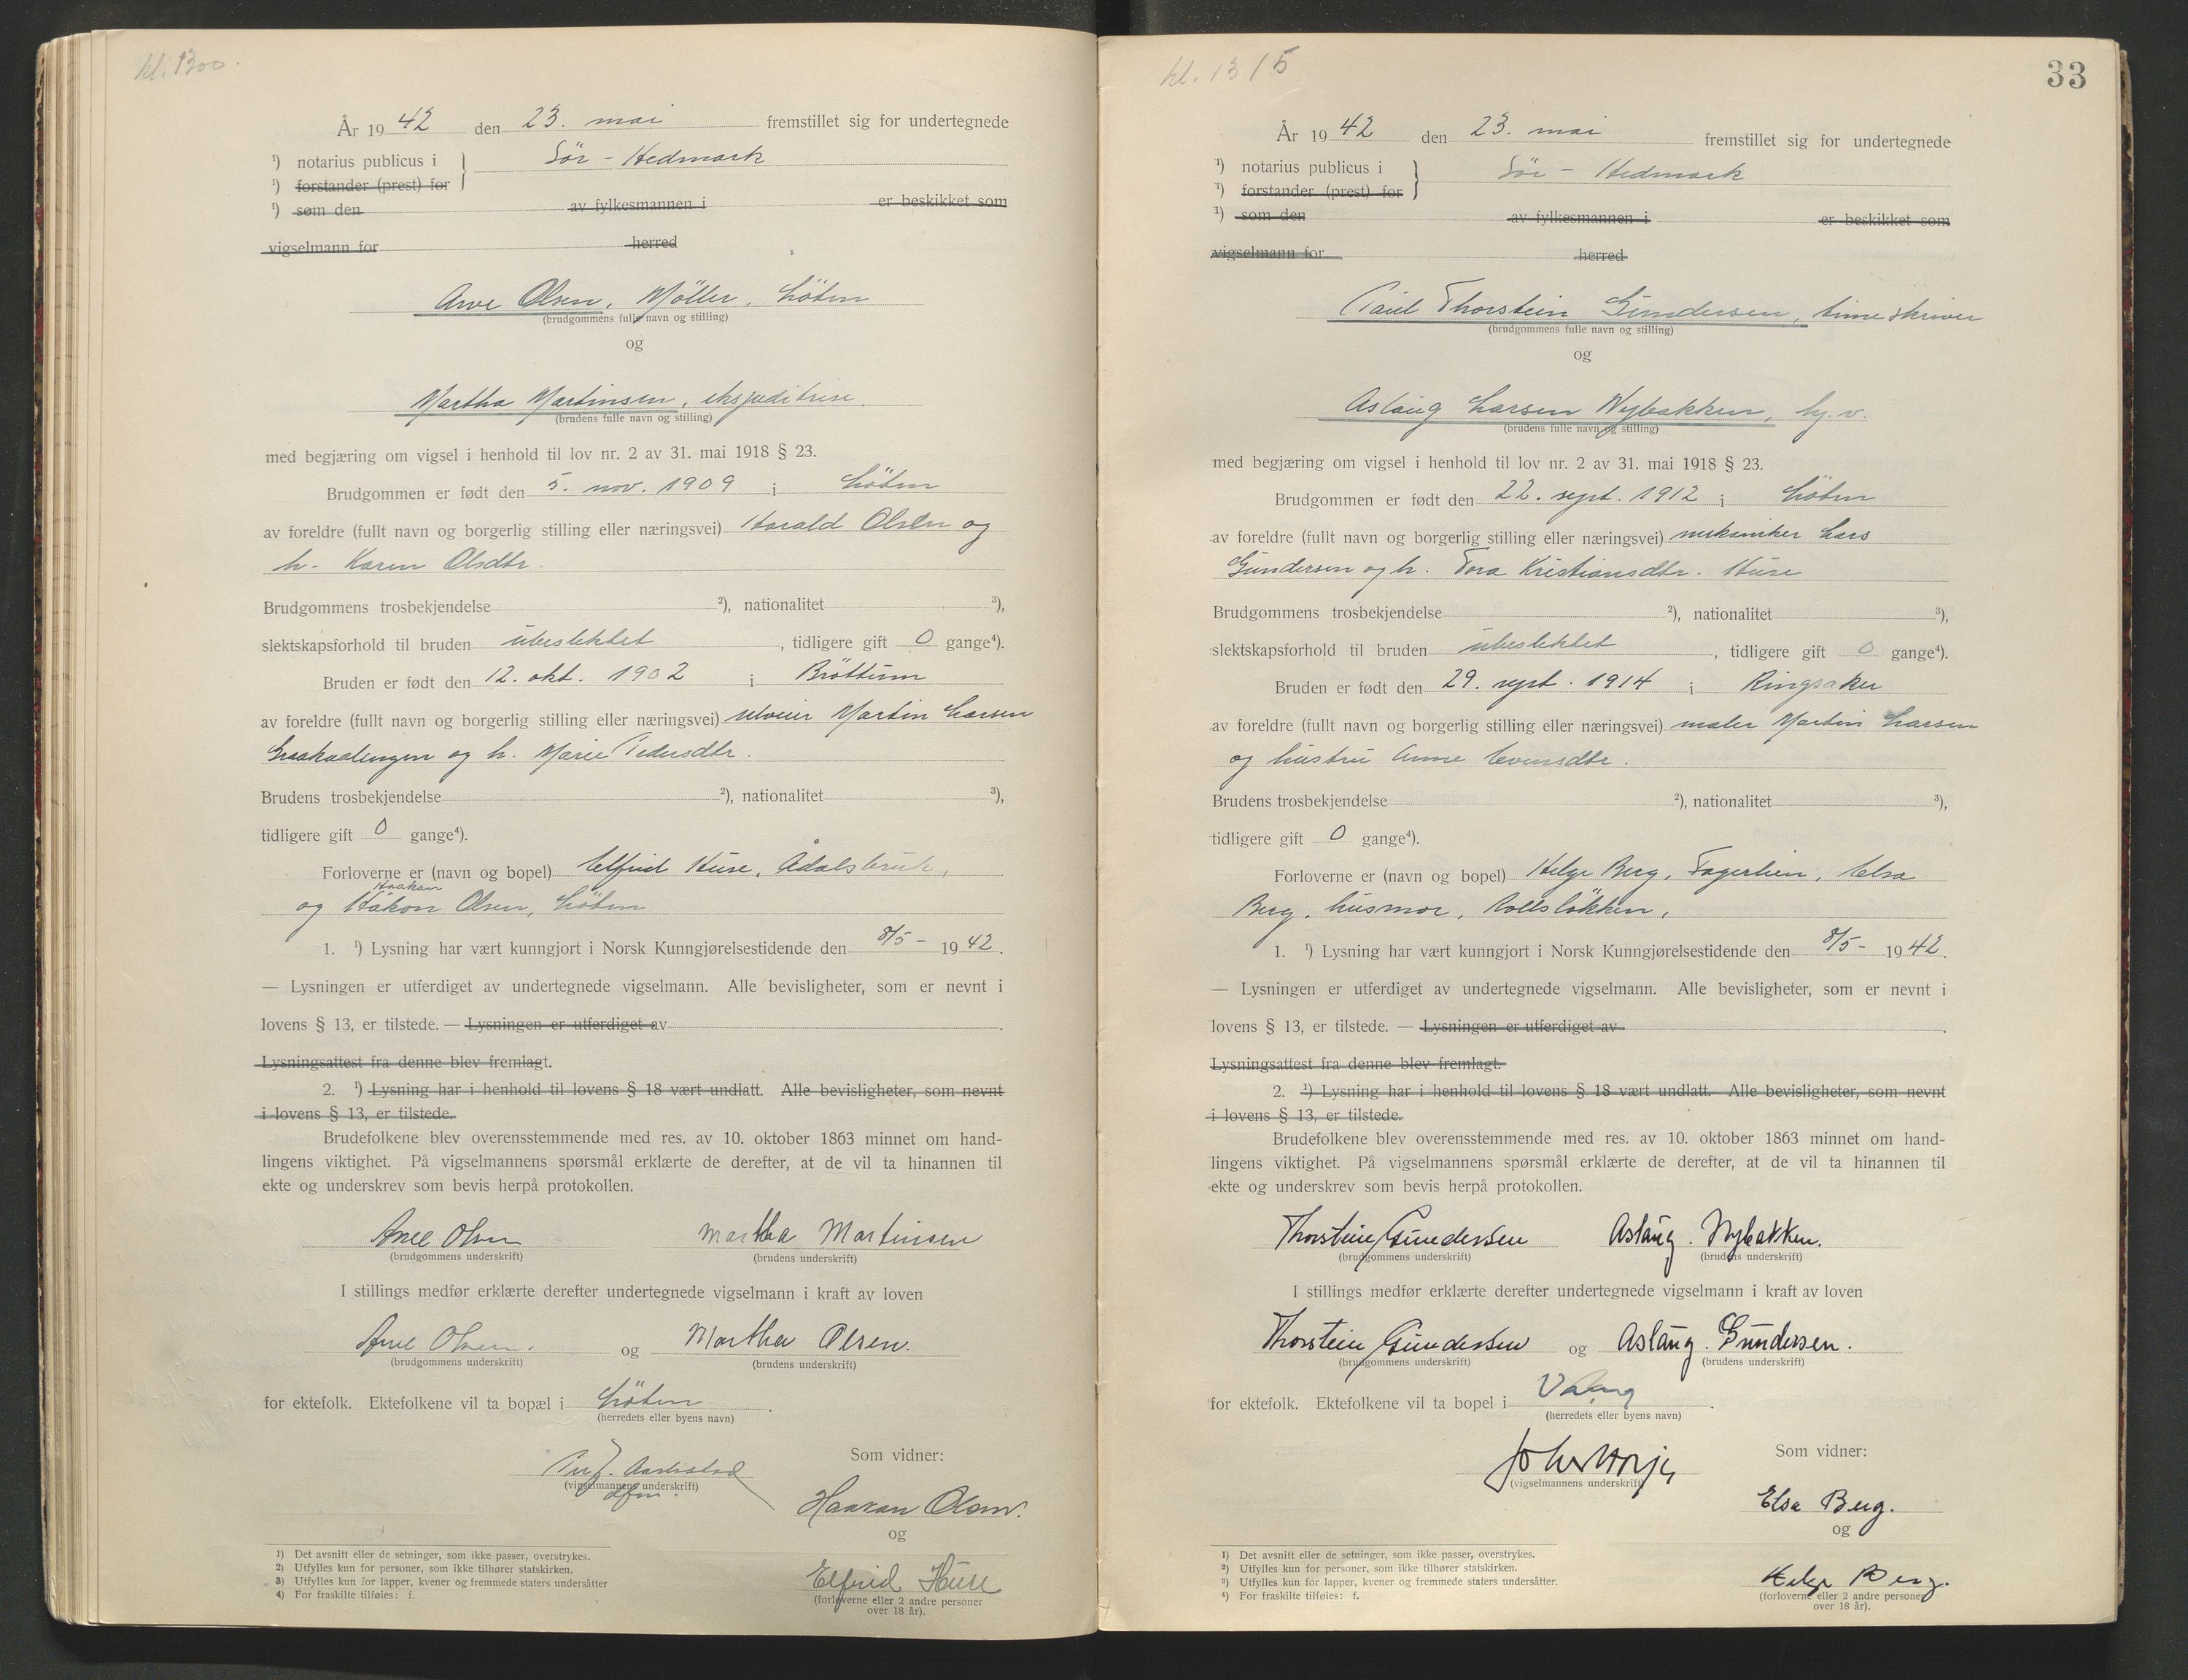 kl. 1300.
År 1942 den 23. mai fremstillet sig for undertegnede
¹) notarius publicus i Sör - Hedmark
¹) forstander (prest) for
¹) som den av fylkesmannen i er beskikket som
vigselmann for herred
Arve Olsen, Möller, Löten
(brudgommens fulle navn og stilling)
og
Martha Martinsen, ekspeditrise.
(brudens fulle navn og stilling)
med begjæring om vigsel i henhold til lov nr. 2 av 31. mai 1918 § 23.
Brudgommen er født den 5. nov. 1909 i Löten
av foreldre (fullt navn og borgerlig stilling eller næringsvei) Harald Olsen og
h. Karen Olsdtr.
Brudgommens trosbekjendelse ²), nationalitet ³),
slektskapsforhold til bruden ubeslektet, tidligere gift 0 gange⁴).
Bruden er født den 12. okt. 1902 i Bröttum
av foreldre (fullt navn og borgerlig stilling eller næringsvei) selveier Martin Larsen
og h. Marie Pedersdtr.
Brudens trosbekjendelse ²), nationalitet ³),
tidligere gift 0 gange⁴).
Forloverne er (navn og bopel) Elfrid Huse, Ådalsbruk,
Haakan
og Håkon Olsen, Löten
1. ¹) Lysning har vært kunngjort i Norsk Kunngjørelsestidende den 8/5 - 1942.
— Lysningen er utferdiget av undertegnede vigselmann. Alle bevisligheter, som er nevnt i
lovens § 13, er tilstede. — Lysningen er utferdiget av .
Lysningsattest fra denne blev fremlagt.
2. ¹) Lysning har i henhold til lovens § 18 vært undlatt. Alle bevisligheter, som nevnt
i lovens § 13, er tilstede.
Brudefolkene blev overensstemmende med res. av 10. oktober 1863 minnet om hand-
lingens viktighet. På vigselmannens spørsmål erklærte de derefter, at de vil ta hinannen til
ekte og underskrev som bevis herpå protokollen.
Arve Olsen Martha Martinsen
(brudgommens underskrift) (brudens underskrift)
I stillings medfør erklærte derefter undertegnede vigselmann i kraft av loven
Arve Olsen. og Martha Olsen.
(brudgommens underskrift) (brudens underskrift)
for ektefolk. Ektefolkene vil ta bopæl i Löten.
(herredets eller byens navn)
Som vidner:
(vigselmannens underskrift)
dfm.
Haakan Olsen.
og
Elfrid Huse
(forloverne eller 2 andre personer
over 18 år).
1) Det avsnitt eller de setninger, som ikke passer, overstrykes.
2) Utfylles kun for personer, som ikke tilhører statskirken.
3) Utfylles kun for lapper, kvener og fremmede staters undersåtter
4) For fraskilte tilføies: f.
kl. 1315
33
År 1942 den 23. mai fremstillet sig for undertegnede
¹) notarius publicus i Sör - Hedmark
¹) forstander (prest) for
¹) som den av fylkesmannen i er beskikket som
vigselmann for herred
Paul Thorstein Gundersen, timeskriver
(brudgommens fulle navn og stilling)
og
Aslaug Larsen Nybakken, hj. v.
(brudens fulle navn og stilling)
med begjæring om vigsel i henhold til lov nr. 2 av 31. mai 1918 § 23.
Brudgommen er født den 22. sept. 1912 i Löten
av foreldre (fullt navn og borgerlig stilling eller næringsvei) mekaniker Lars
Gundersen og h. Tora Kristiansdtr. Huse
Brudgommens trosbekjendelse ²), nationalitet ³),
slektskapsforhold til bruden ubeslektet, tidligere gift 0 gange⁴).
Bruden er født den 29. sept. 1914 i Ringsaker
av foreldre (fullt navn og borgerlig stilling eller næringsvei) maler Martin Larsen
og hustru Anne Evensdtr.
Brudens trosbekjendelse ²), nationalitet ³),
tidligere gift 0 gange⁴).
Forloverne er (navn og bopel) Helge Berg, Fagerlien, Elsa
Berg, husmor, Rollsløkken,
1. ¹) Lysning har vært kunngjort i Norsk Kunngjørelsestidende den 8/5 - 1942.
— Lysningen er utferdiget av undertegnede vigselmann. Alle bevisligheter, som er nevnt i
lovens § 13, er tilstede. — Lysningen er utferdiget av .
Lysningsattest fra denne blev fremlagt.
2. ¹) Lysning har i henhold til lovens § 18 vært undlatt. Alle bevisligheter, som nevnt
i lovens § 13, er tilstede.
Brudefolkene blev overensstemmende med res. av 10. oktober 1863 minnet om hand-
lingens viktighet. På vigselmannens spørsmål erklærte de derefter, at de vil ta hinannen til
ekte og underskrev som bevis herpå protokollen.
Thorstein Gundersen Aslaug. Nybakken.
(brudgommens underskrift) (brudens underskrift)
I stillings medfør erklærte derefter undertegnede vigselmann i kraft av loven
Thorstein Gundersen og Aslaug. Gundersen.
(brudgommens underskrift) (brudens underskrift)
for ektefolk. Ektefolkene vil ta bopel i Vang.
(herredets eller byens navn)
Som vidner:
(vigselmannens underskrift)
Elsa Berg.
og
Helge Berg.
(forloverne eller 2 andre personer
over 18 år).
¹) Det avsnitt eller de setninger, som ikke passer, overstrykes.
²) Utfylles kun for personer, som ikke tilhører statskirken.
³) Utfylles kun for lapper, kvener og fremmede staters undersåtter.
⁴) For fraskilte tilføies: f.